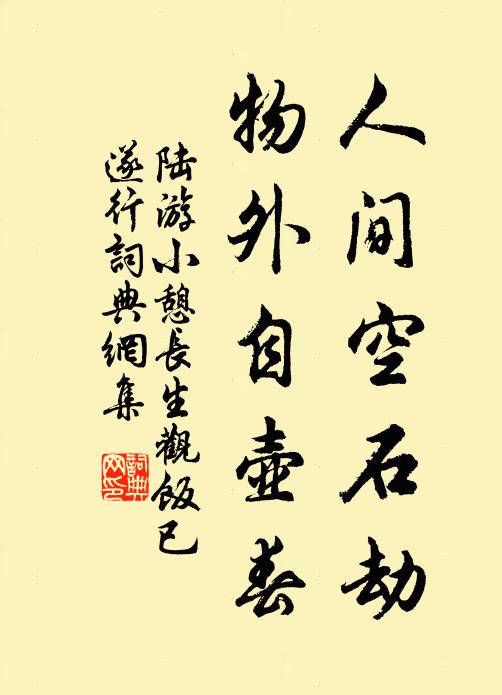 人间空石劫
物外自壶春
陆游小憩長生觀飯已
遂行詞典網集
詞典
网印